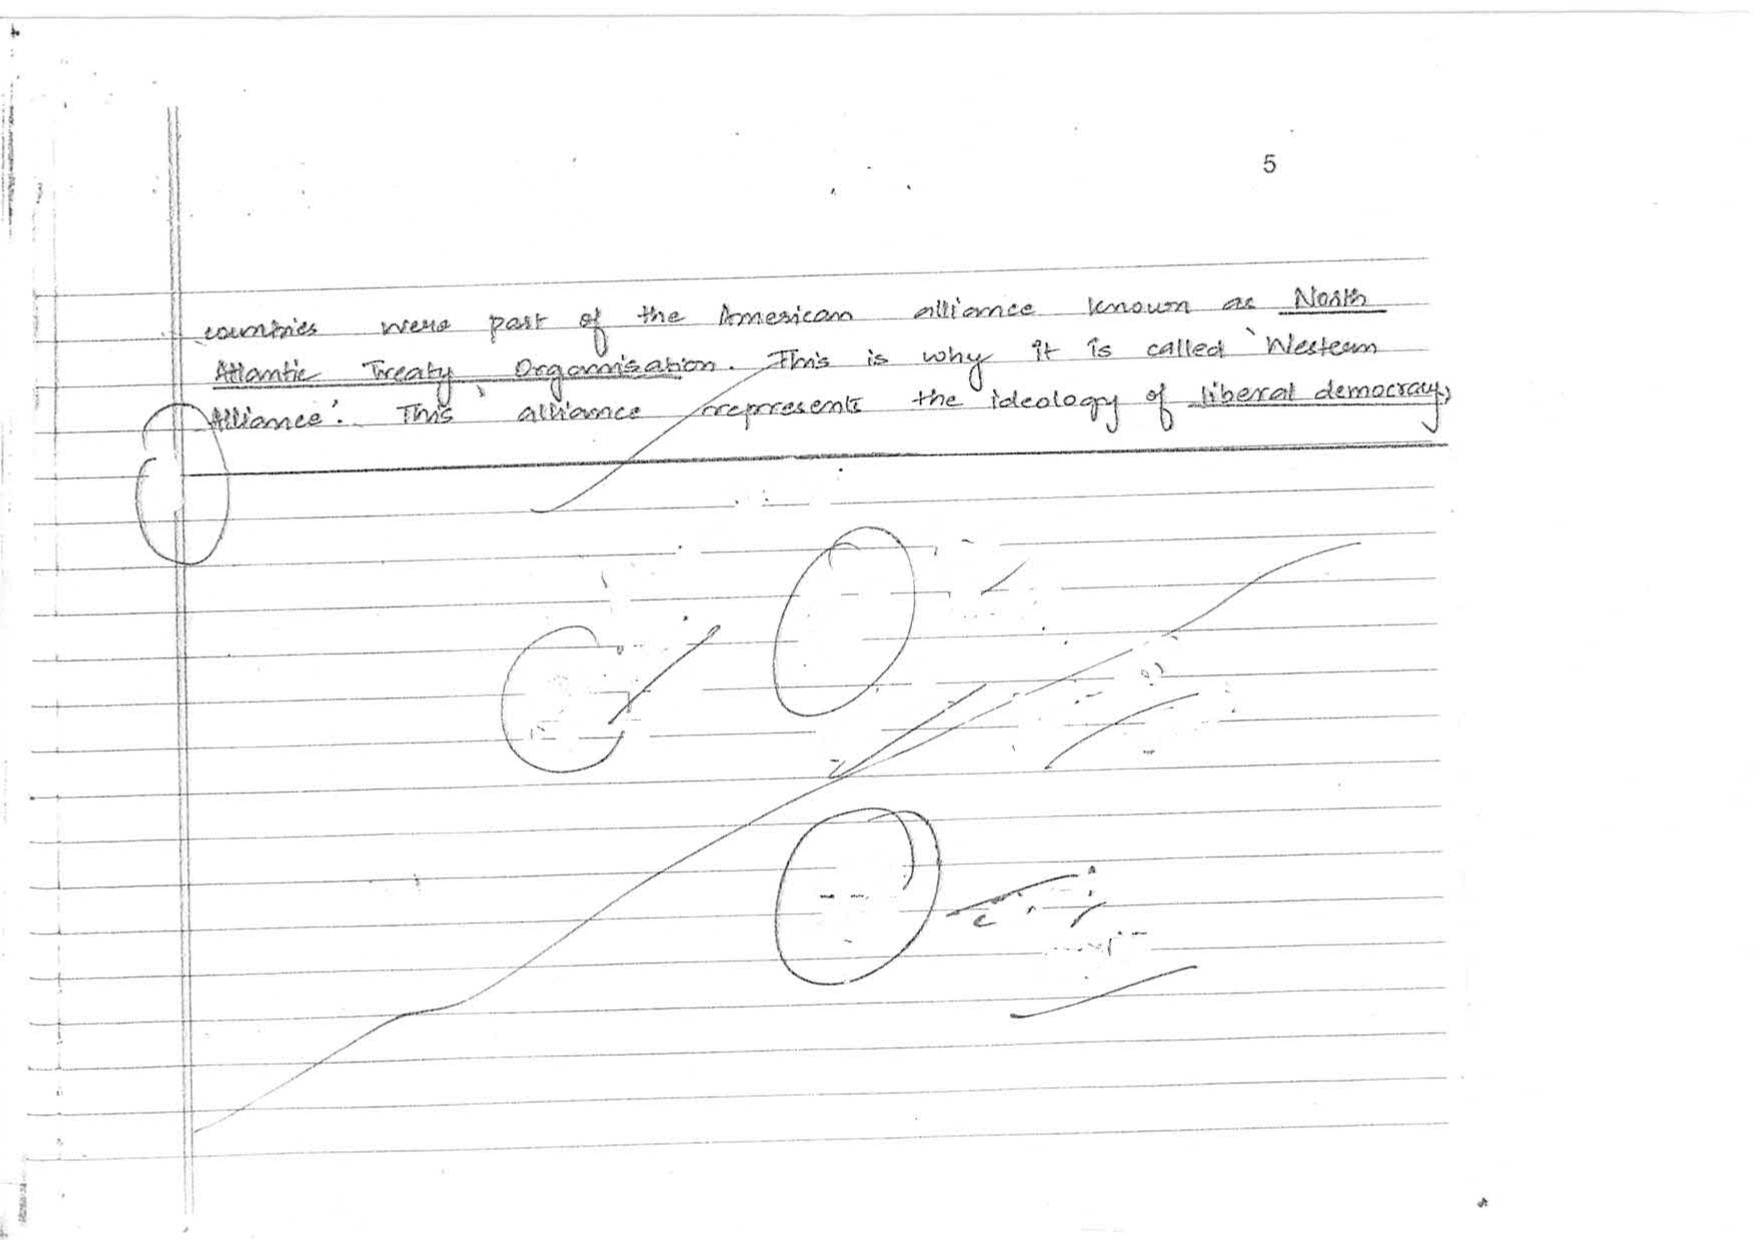 5
countries were part of the American alliance known as North
Atlantic Treaty Organnisation. This is why it is called 'Western
Alliance'. This alliance represents the ideology of liberal democracy,